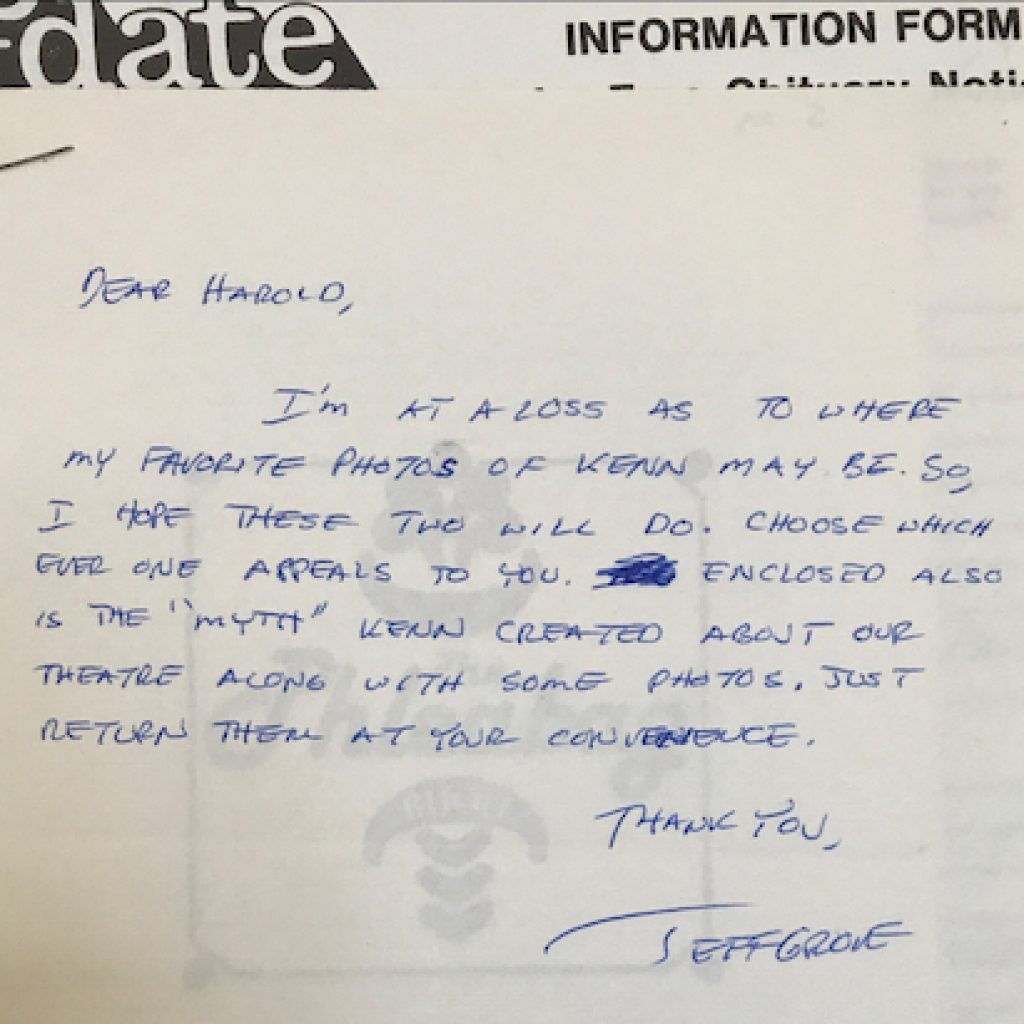 date
INFORMATION FORM
Obituary
DEAR HAROLD,
I'm AT A LOSS AS TO WHERE
MY FAVORITE PHOTOS OF KENN MAY BE. SO,
I HOPE THESE TWO WILL DO. CHOOSE WHICH
EVER ONE APPEALS TO YOU. ENCLOSED ALSO
IS THE "MYTH" KENN CREATED ABOUT OUR
THEATRE ALONG WITH SOME PHOTOS. JUST
RETURN THEM AT YOUR CONVENIENCE.
THANK YOU,
JEFF GROVE